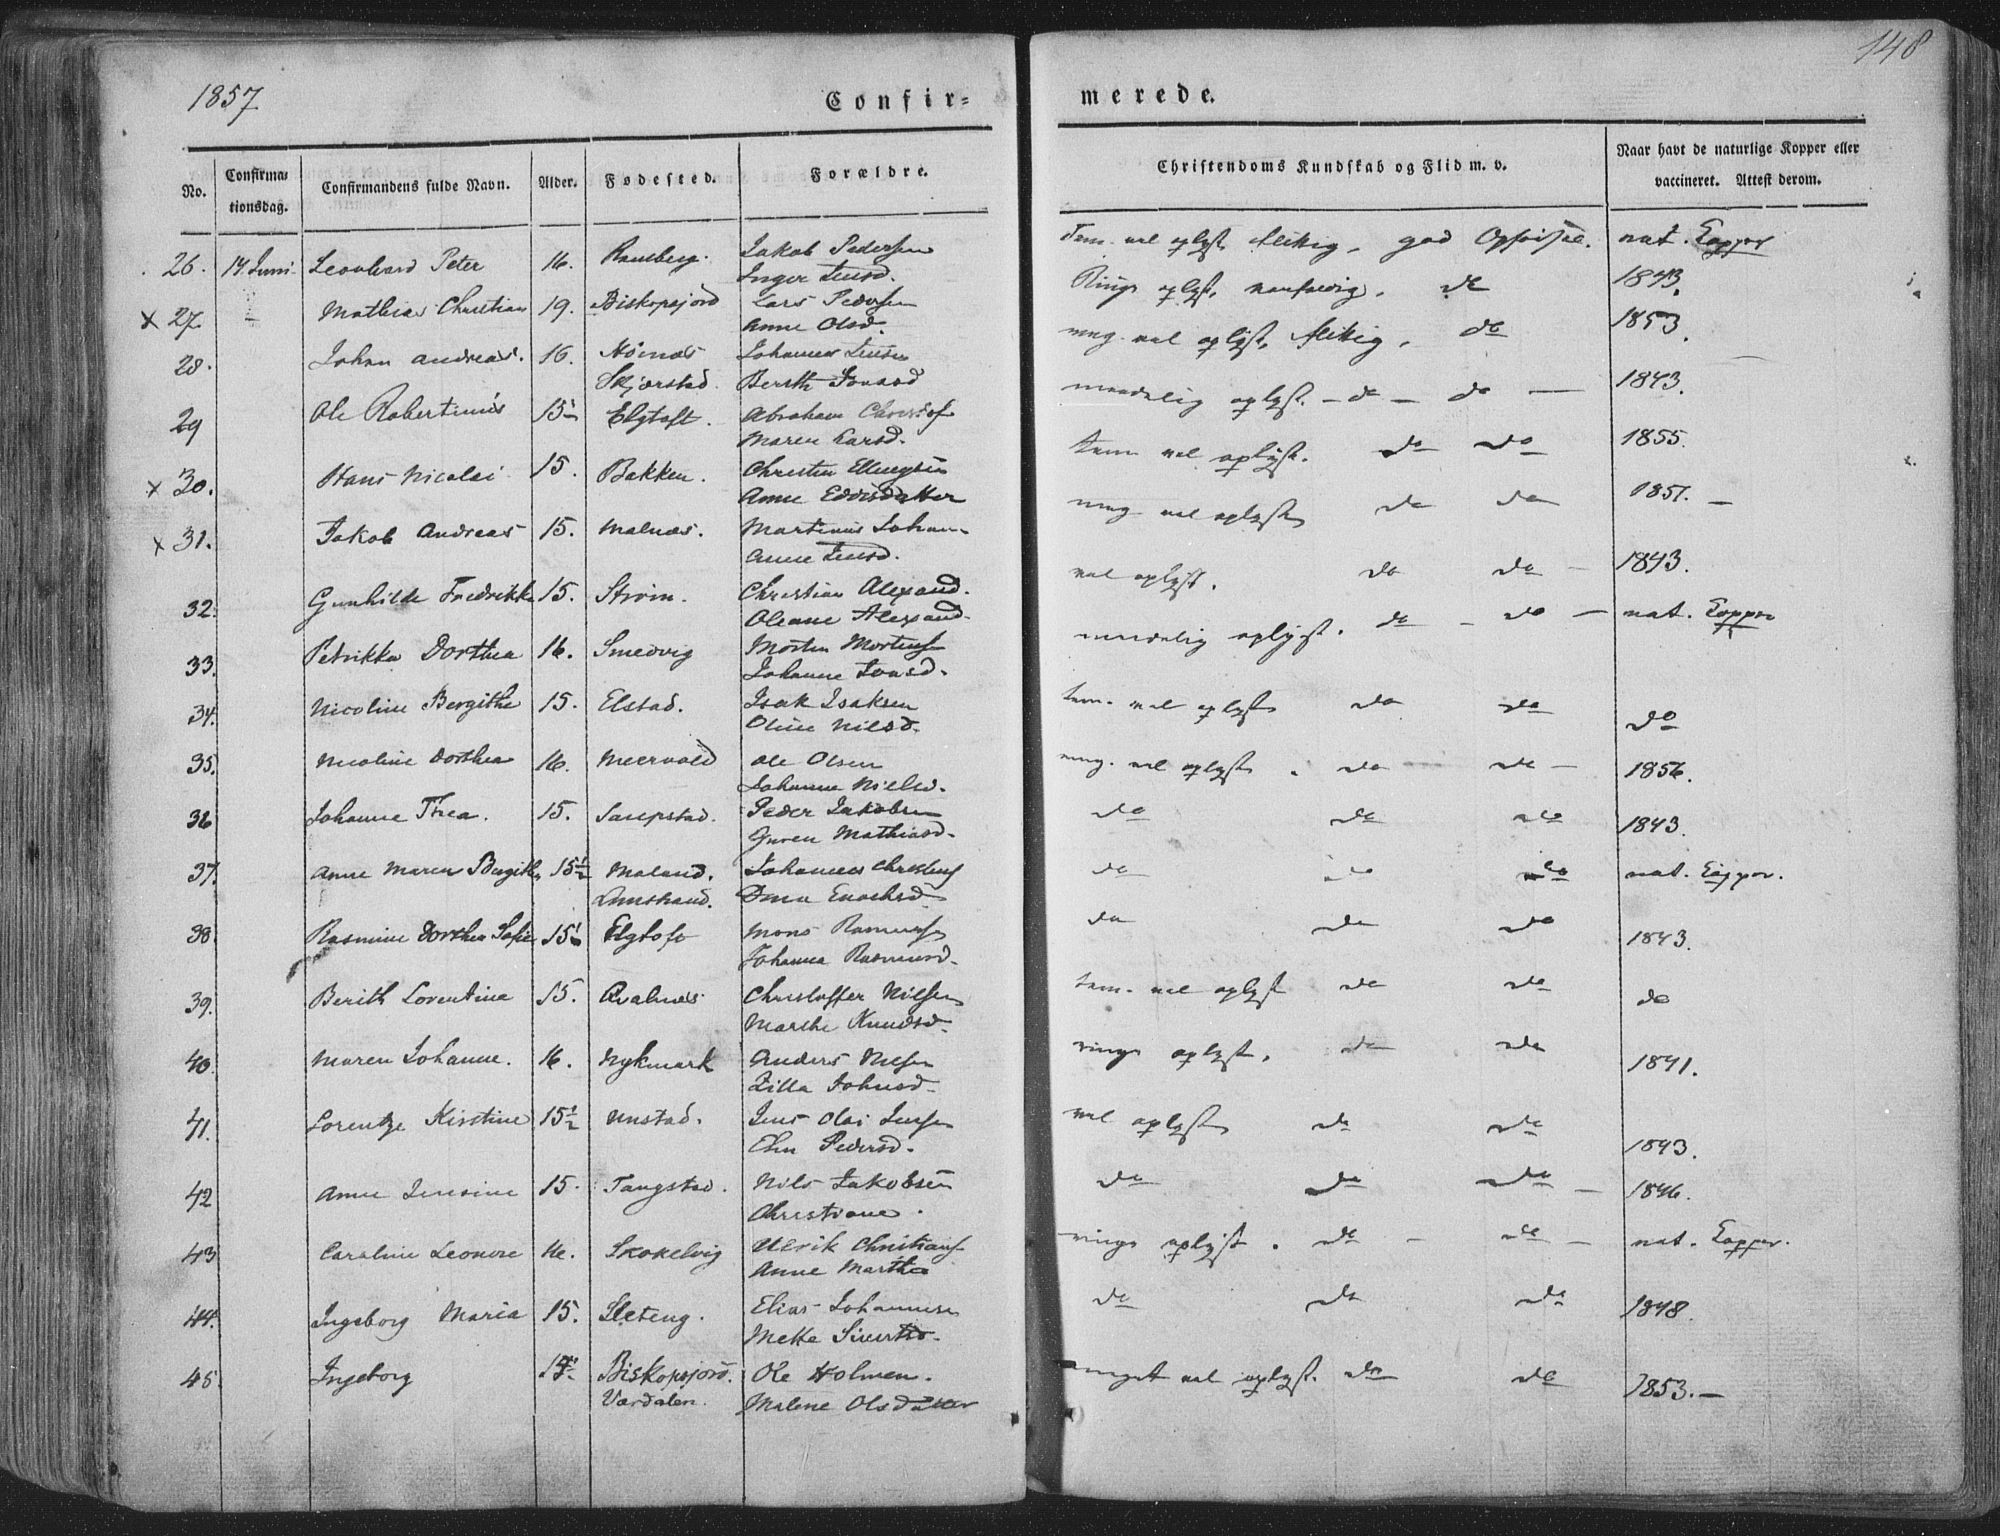 1857
148
Confir-
merede.
No.
Confirma-
tionsdag.
Confirmandens fulde Navn.
Alder.
Fødested.
Forældre.
Christendoms Kundskab og Flid m. v.
Naar havt de naturlige Kopper eller
vaccineret. Attest derom.
26. 14 Juni Leonhard Peter 16. Ramberg. Jakob Pedersen
Inger Jensd.
Tem. vel oplyst, flittig, god Opførsel. nat. Kopper
x 27. - Mathias Christian 19. Biskopsjord Lars Pedersen
Anne Olsd.
Ringe oplyst, do 1843.
28. Johan Andreas. 16. Høinæs Johannes Jensen
Skjærstad. Berith
meg. vel oplyst, flittig, do 1853.
29 Ole Robertinus 15½ Elgtoft. Abraham
Maren Larsd.
maadelig oplyst. - do - do - 1843.
x 30. Hans Nicolai 15. Bakken. Christen Ellingsen
Anne Edisdatter
tem vel oplyst. do do 1855.
x 31. Jakob Andreas 15. Malnæs. Martinus Johan-
Anne Jensd.
meg vel oplyst do do 1857. -
32. Gunhilde Fredrikke 15. Strøm. Christian Alexand.
Oleane Alexand.
vel oplyst. do do - 1843.
33. Petrikke Dorthea 16. Smedvig Morten Mortensen
Johanne
maadelig oplyst. do - do - nat. Kopper
34. Nicoline Bergithe 15. Elstad. Isak Isaksen
Oline Nilsd.
tem. vel oplyst do do do
35. Nicoline Dorthea 16. Meervold Ole Olsen
Johanne Nielsd.
meg. vel oplyst. do do - 1856.
36 Johanne Thea. 15. Sarepstad. Peder Jakobsen
Guren Mathiasd.
do do do 1843.
37. Anne Maren Bergithe 15½ Moland. Johannes Christens
Limstrand.
do do do nat. Kopper.
38 Rasmine Dorthea Sofie 15½ Elgtoft Mons Rasmussen
Johanna Rasmusd.
do do do 1843.
39. Berith Lorentine 15. Qvalnæs Christoffer Nilsen
Marthe Knudsd.
tem. vel oplyst do do do
40. Maren Johanne. 16. Nykmark Anders Nilsen
Zilla Johnsd.
ringe oplyst. do do 1841.
41. Lorentze Kirstine 15½ Unstad. Jens Olai Jensen
Elen Pedersd.
vel oplyst do do 1843.
42 Anne Jensine 15. Tangstad. Nils Jakobsen
Christiane.
do do do - 1846.
43 Caroline Leonore 16. Skokelvig Ulrik Christians
Anne Martha
ringe oplyst. do - do - nat. Kopper.
44. Ingeborg Maria 15. Sleteng. Elias Johannesen
Mette Sivertsd.
do do do 1848.
45. Ingeborg Biskopsjord. Ole Holmen.
Værdalen. Malene Olsdatter
meget vel oplyst. do do 1853. -